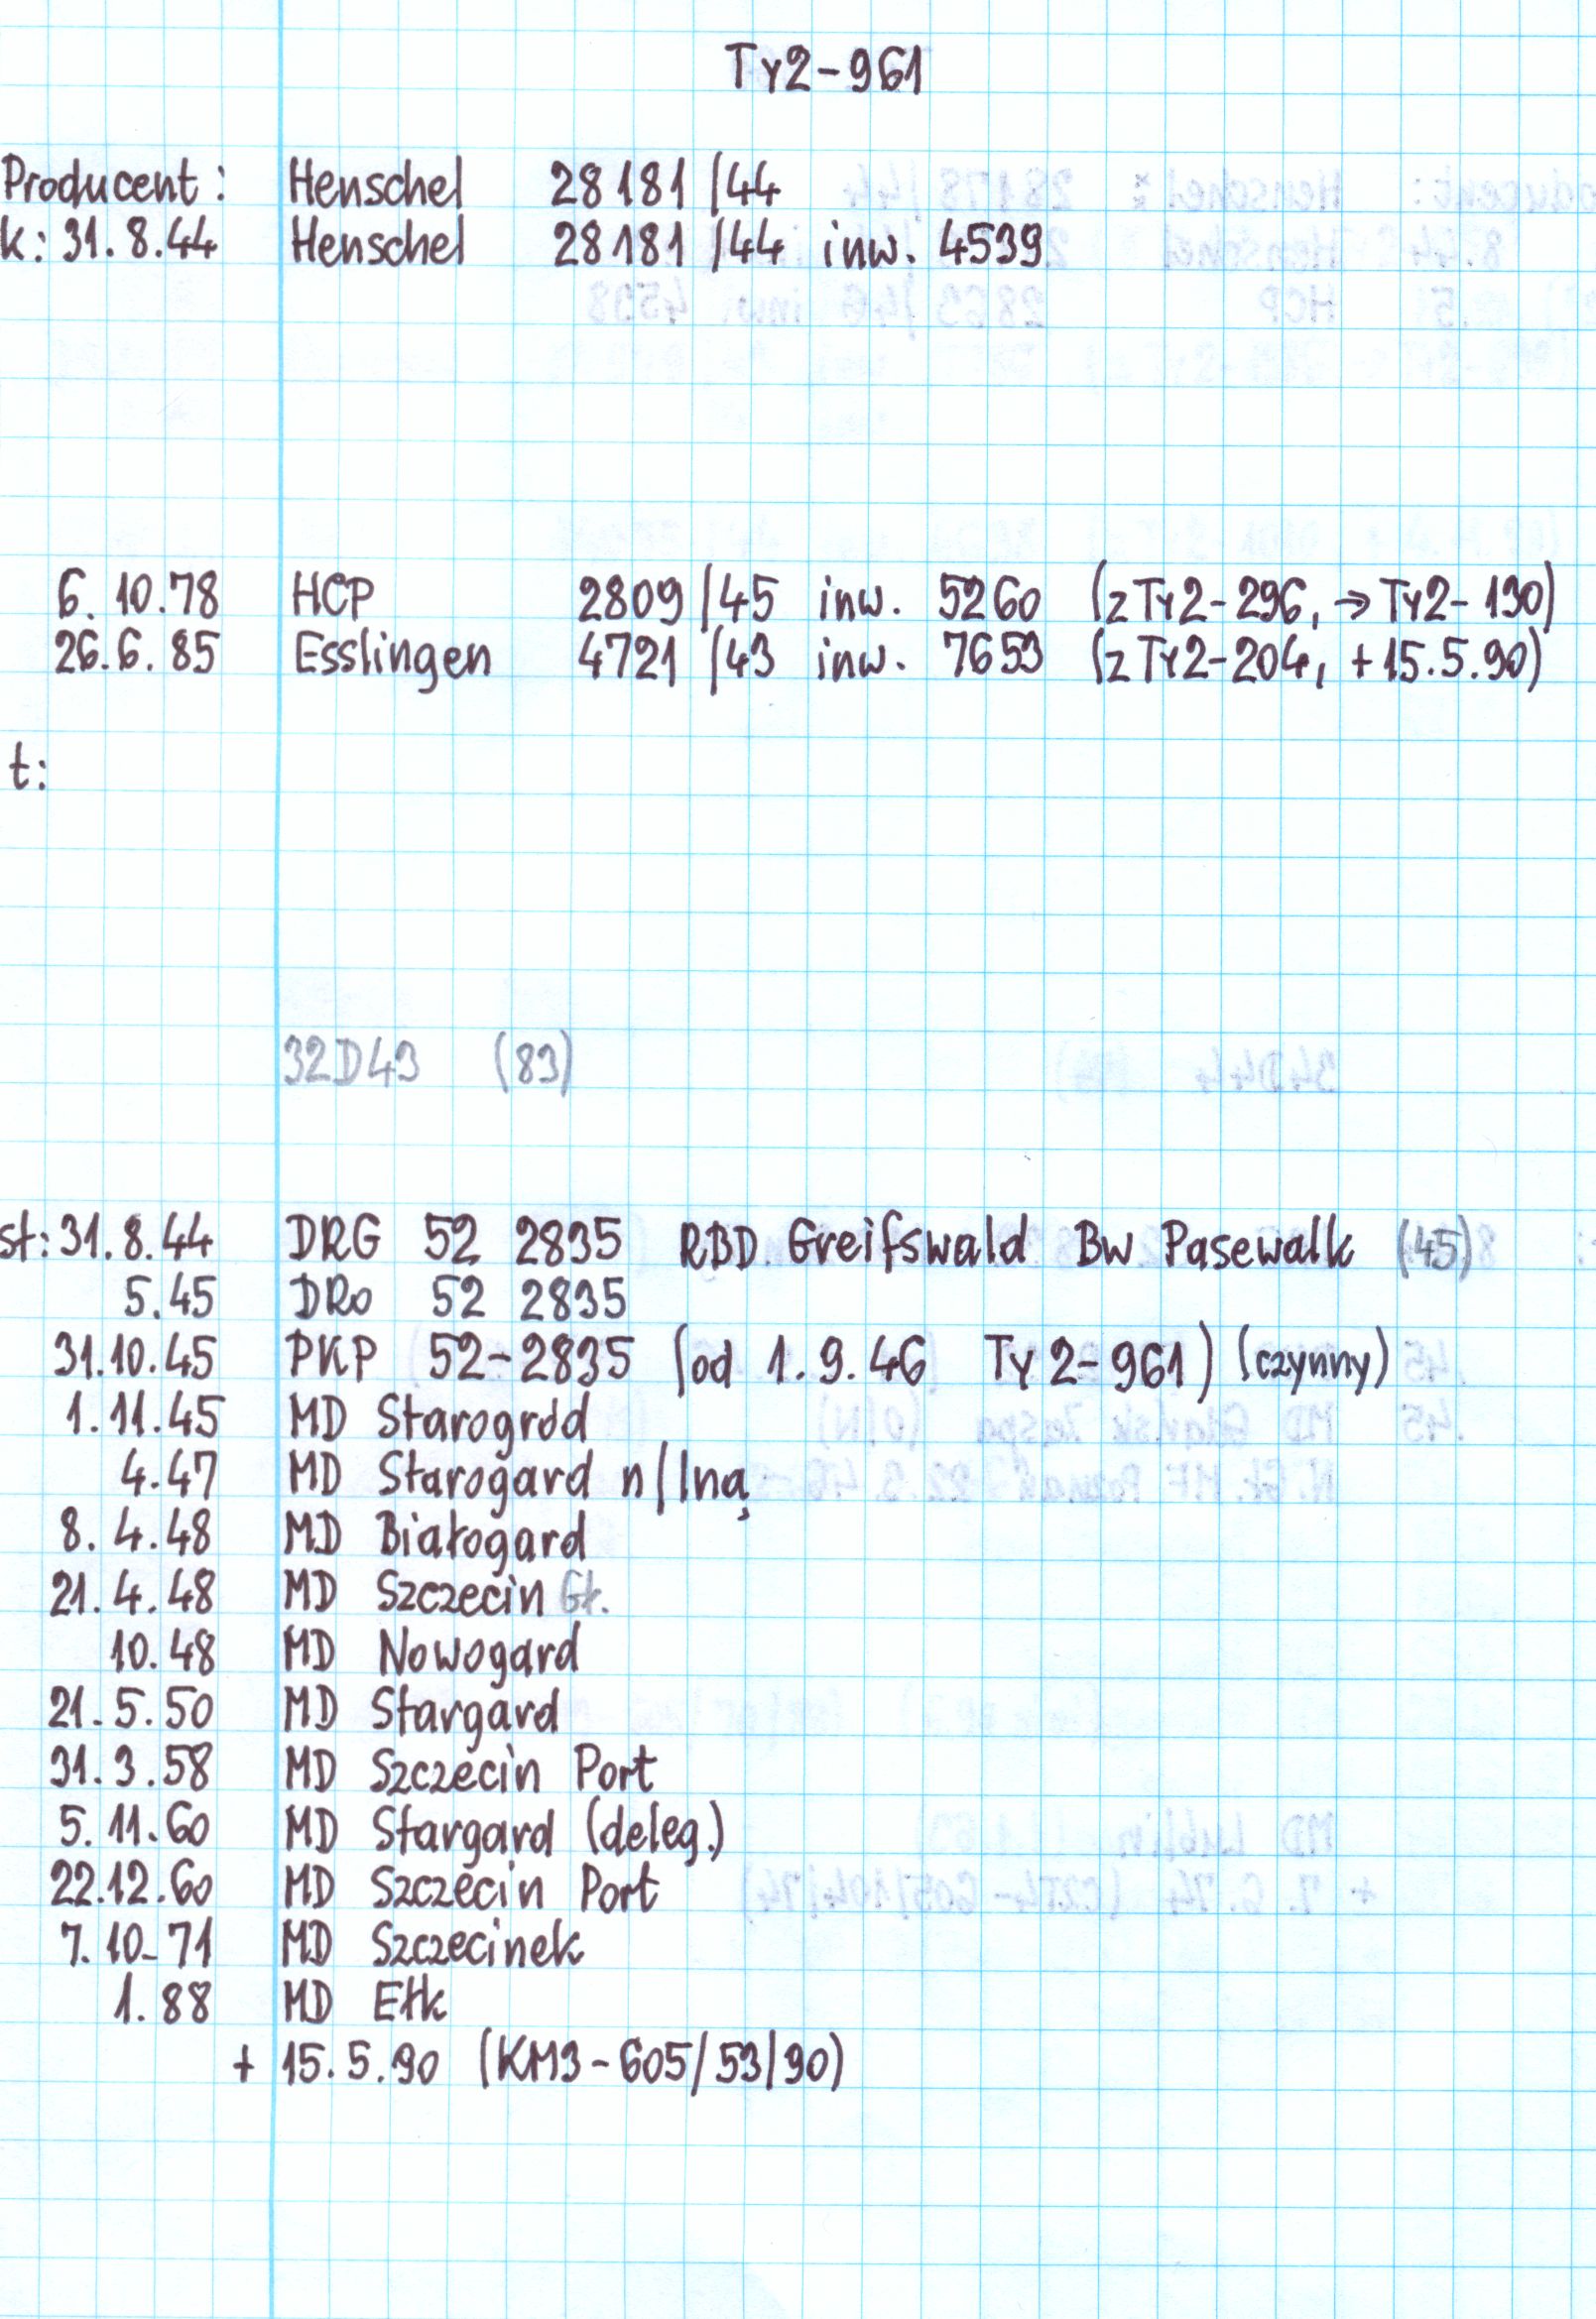 Ty2-961
Producent: Henschel 28181/44
k: 31.8.44 Henschel 28181/44 inw. 4539
6.10.78 HCP 2809/45 inw. 5260 (z Ty2-296, → Ty2-130)
26.6.85 Esslingen 4721/43 inw. 7653 (z Ty2-204, +15.5.90)
t:
32D43 (83)
st: 31.8.44 DRG 52 2835 RBD Greifswald Bw Pasewalk (45)
5.45 DRo 52 2835
31.10.45 PKP 52-2835 (od 1.9.46 Ty2-961) (czynny)
1.11.45 MD Starogród
4.47 MD Starogard n/Iną
8.4.48 MD Białogard
21.4.48 MD Szczecin Gł.
10.48 MD Nowogard
21.5.50 MD Stargard
31.3.58 MD Szczecin Port
5.11.60 MD Stargard (deleg.)
22.12.60 MD Szczecin Port
7.10-71 MD Szczecinek
1.88 MD Ełk
+ 15.5.90 (KM3-605/53/90)